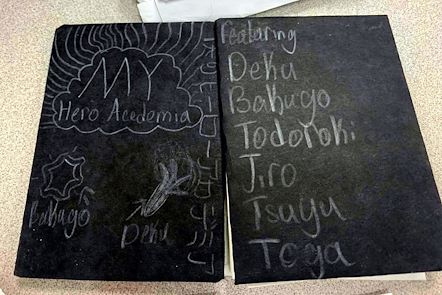 MY
Hero Acedemia
Bakugo
Deku
Featuring
Deku
Bakugo
Todoroki
Jiro
Tsuyu
Toga